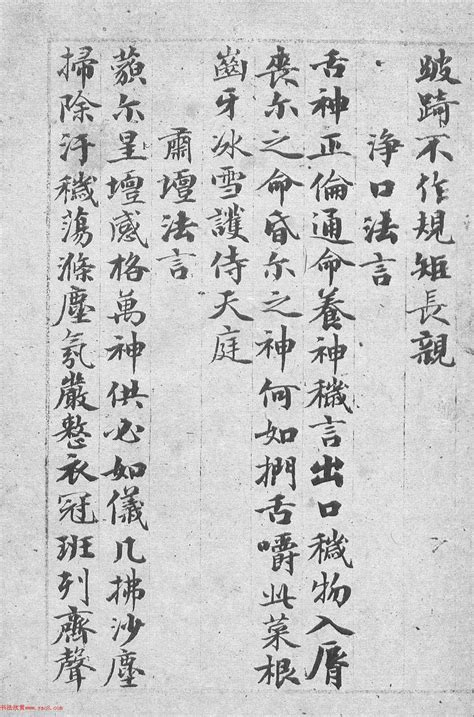 跛踦不作規矩長親
淨口法言
舌神正倫通命養神穢言出口穢物入脣
喪尔之命昏尔之神何如捫舌嚼此菜根
齒牙冰雪護侍天庭
肅壇法言
蘋尔星壇感格萬神供必如儀几拂沙塵
掃除汙穢蕩滌塵氛嚴整衣冠班列齊聲
书法欣赏www.yac8.com